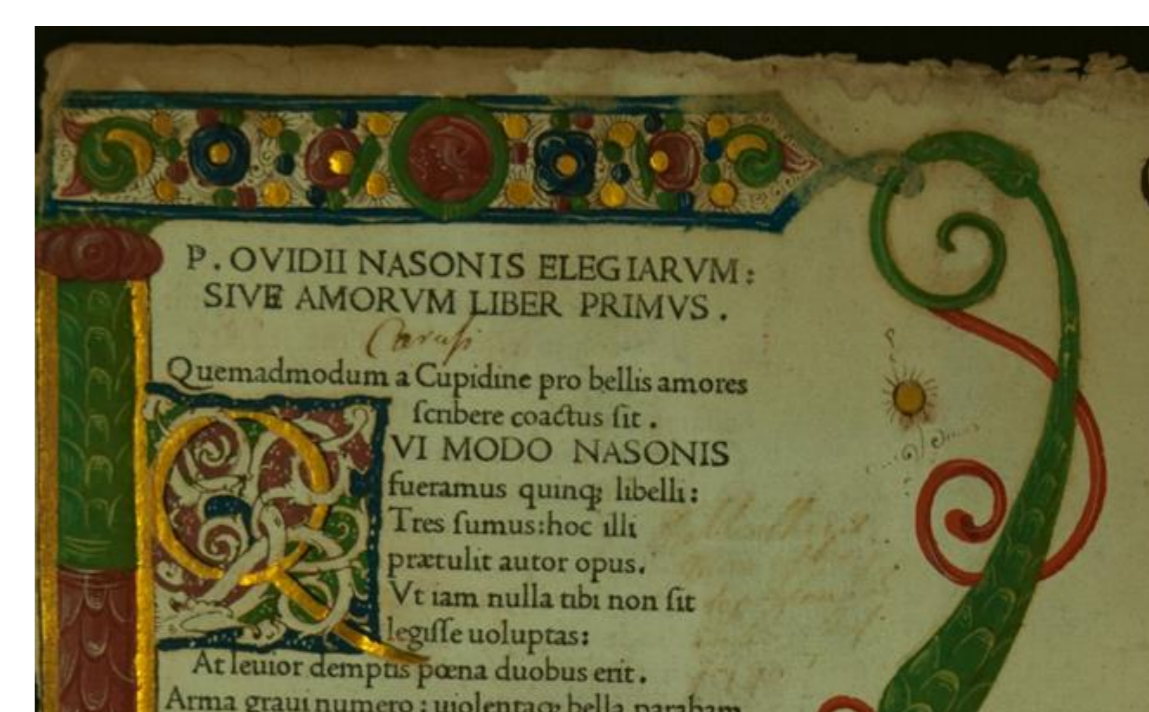 P. OVIDII NASONIS ELEGIARVM:
SIVE AMORVM LIBER PRIMVS.
Quemadmodum a Cupidine pro bellis amores
ſcribere coactus ſit.
QVI MODO NASONIS
fueramus quinqꝫ libelli:
Tres ſumus:hoc illi
prætulit autor opus.
Vt iam nulla tibi non ſit
legiſſe uoluptas:
At leuior demptis pœna duobus erit.
Arma graui numero: uiolentaqꝫ bella parabam